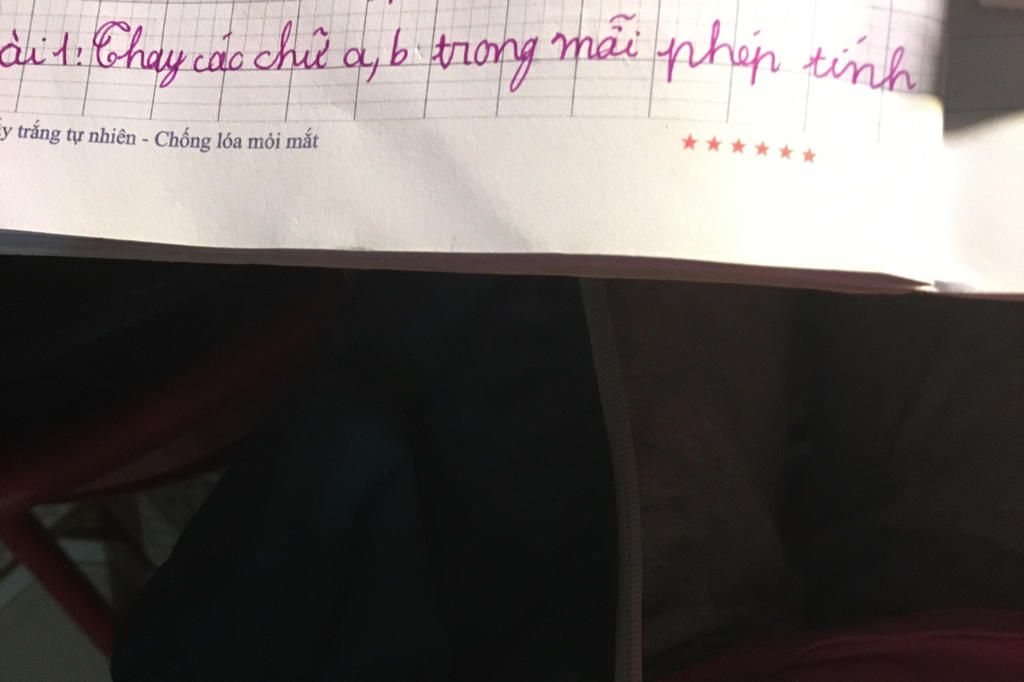 ài 1: Thay các chữ a, b trong mỗi phép tính
y trắng tự nhiên - Chống lóa mỏi mắt